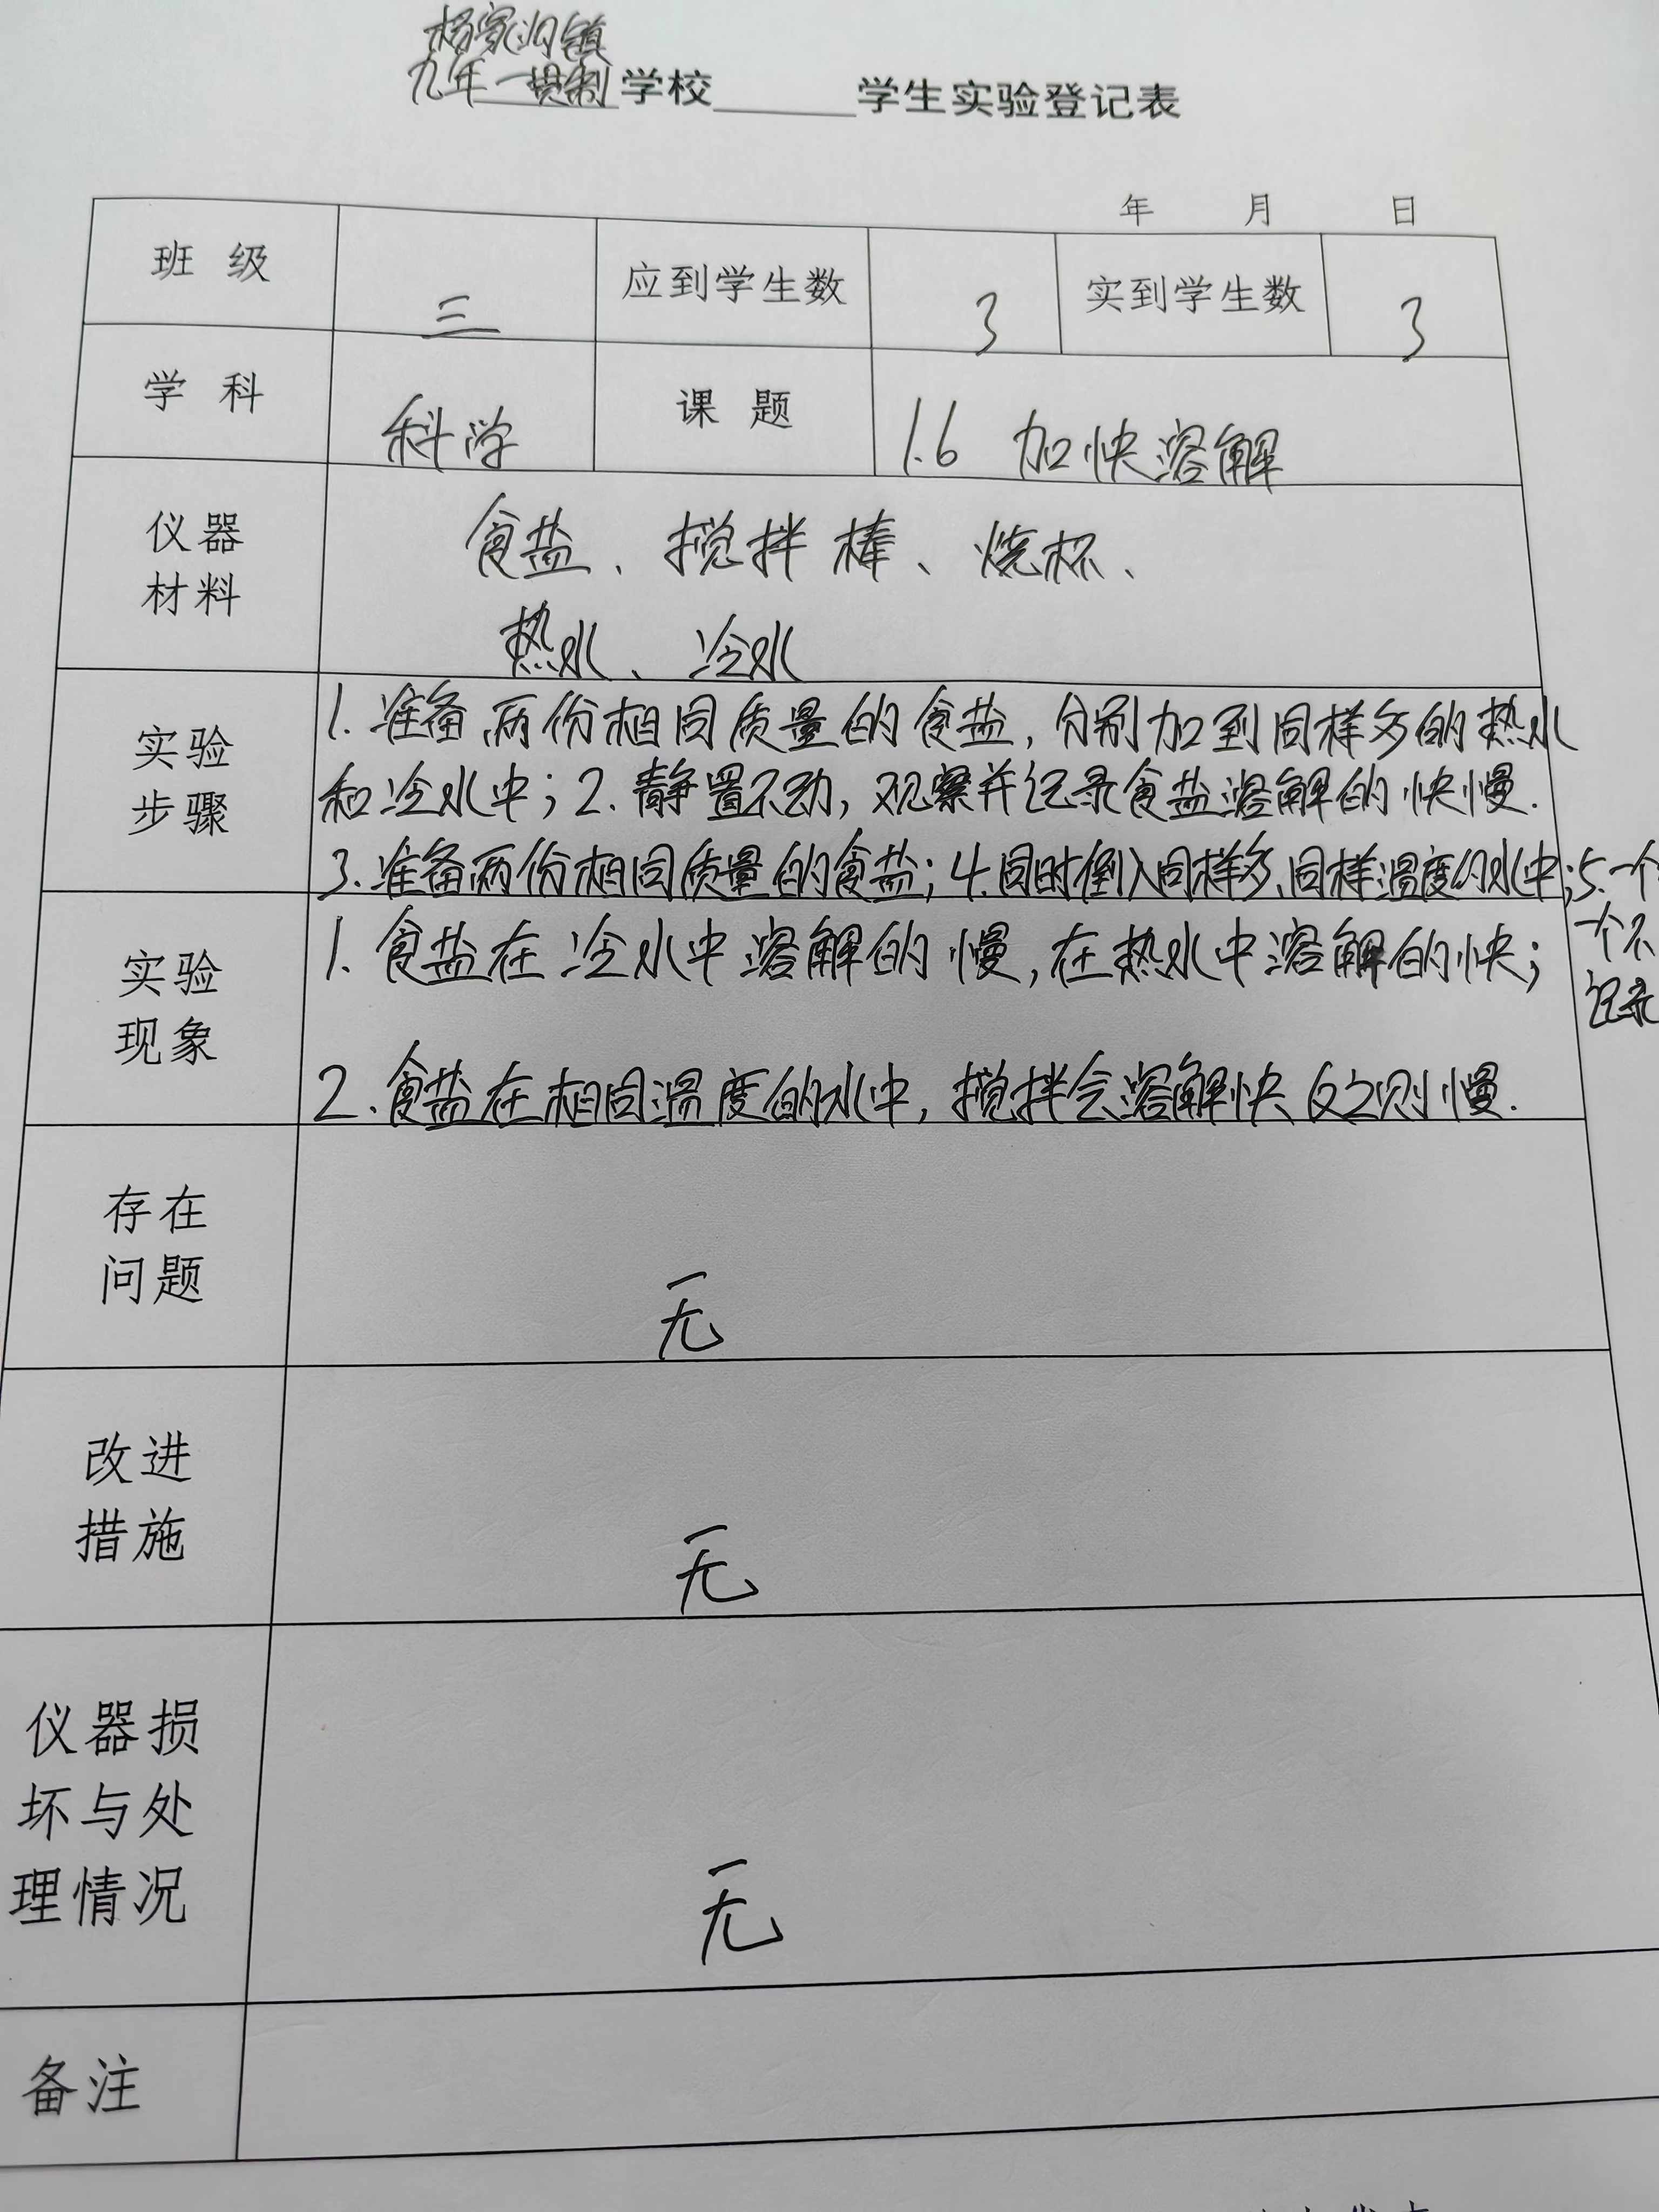 杨家沟镇
九年一贯制学校______学生实验登记表
年 月 日
班 级 三 应到学生数 3 实到学生数 3
学 科 科学 课 题 1.6 加快溶解
仪器
材料
食盐、搅拌棒、烧杯、
热水、冷水
实验
步骤
1. 准备两份相同质量的食盐,分别加到同样多的热水
和冷水中;2. 静置不动,观察并记录食盐溶解的快慢.
3. 准备两份相同质量的食盐;4.同时倒入同样多、同样温度的水中;5.一个
一个不
记录
实验
现象
1. 食盐在冷水中溶解的慢,在热水中溶解的快;
2. 食盐在相同温度的水中,搅拌会溶解快反之则慢.
存在
问题
无
改进
措施
无
仪器损
坏与处
理情况
无
备注